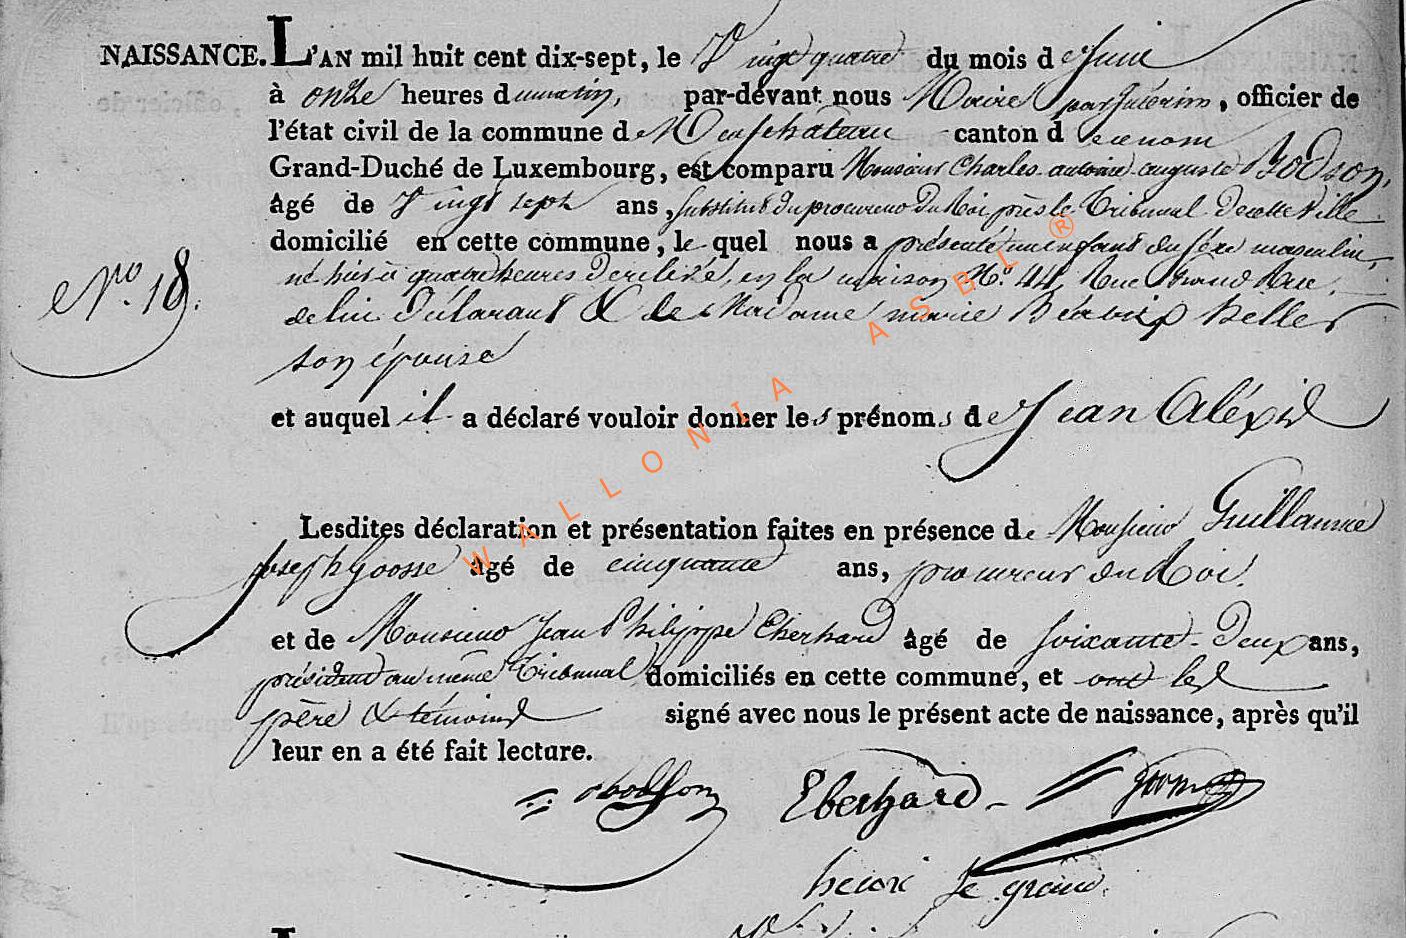 NAISSANCE. L'AN mil huit cent dix-sept, le Vingt quatre du mois de Juin
à onze heures du matin, par-devant nous Maire par Intérim, officier de
l'état civil de la commune de Neufchâteau canton de ce nom
Grand-Duché de Luxembourg, est comparu Monsieur Charles antoine auguste Bodson,
âgé de Vingt sept ans, substitut du procureur du Roi près le Tribunal de cette Ville
domicilié en cette commune, le quel nous a présenté un enfant du sexe masculin,
Nro. 18.
né hier à quatre heures de relevé, en la maison No. 44, Rue Grand Rue,
de lui Déclarant & de Madame marie Béatrix Keller
son épouse
et auquel il a déclaré vouloir donner les prénoms de Jean Aléxis
Lesdites déclaration et présentation faites en présence de Monsieur Guillaume
Joseph Goosse âgé de cinquante ans, procureur du Roi
et de Monsieur Jean Philippe Eberhard âgé de soixante-Deux ans,
président au même Tribunal domiciliés en cette commune, et ont les
père & témoins signé avec nous le présent acte de naissance, après qu'il
leur en a été fait lecture.
Bodson Eberhard Goosse
henri le grand
WALLONIA ASBL ®